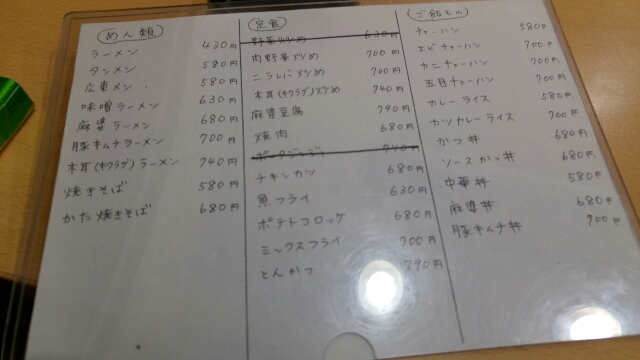 めん類
ラーメン 430円
タンメン 580円
広東メン 580円
味噌ラーメン 630円
麻婆ラーメン 680円
豚キムチラーメン 700円
木耳(キクラゲ)ラーメン 740円
焼きそば 580円
かた焼きそば 680円
定食
野菜炒め 630円
肉野菜炒め 700円
ニラレバ炒め 700円
木耳(キクラゲ)炒め 740円
麻婆豆腐 790円
焼肉 680円
740円
チキンカツ 680円
魚フライ 630円
ポテトコロッケ 680円
ミックスフライ 700円
とんかつ 790円
ご飯もの
チャーハン 580円
エビチャーハン 700円
カニチャーハン 700円
五目チャーハン 680円
カレーライス 580円
カツカレーライス 700円
かつ丼 680円
ソースかつ丼 680円
中華丼 580円
麻婆丼 680円
豚キムチ丼 700円